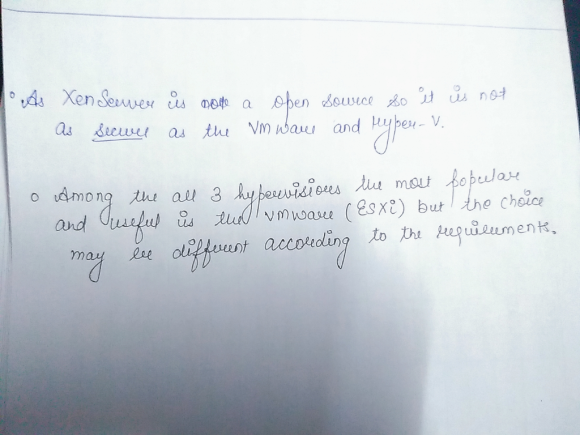 ○ As XenServer is not a open source so it is not
as secure as the VMware and Hyper-V.
○ Among the all 3 hypervisiors the most popular
and useful is the vmware (ESXi) but the choice
may be different according to the requirements.